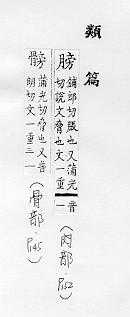 類篇
膀 鋪郎切脹也又蒲光
切說文脅也文一重一音
（肉部．P152）
髈 蒲光切脅也又普
朗切文一重三
（骨部．P145）